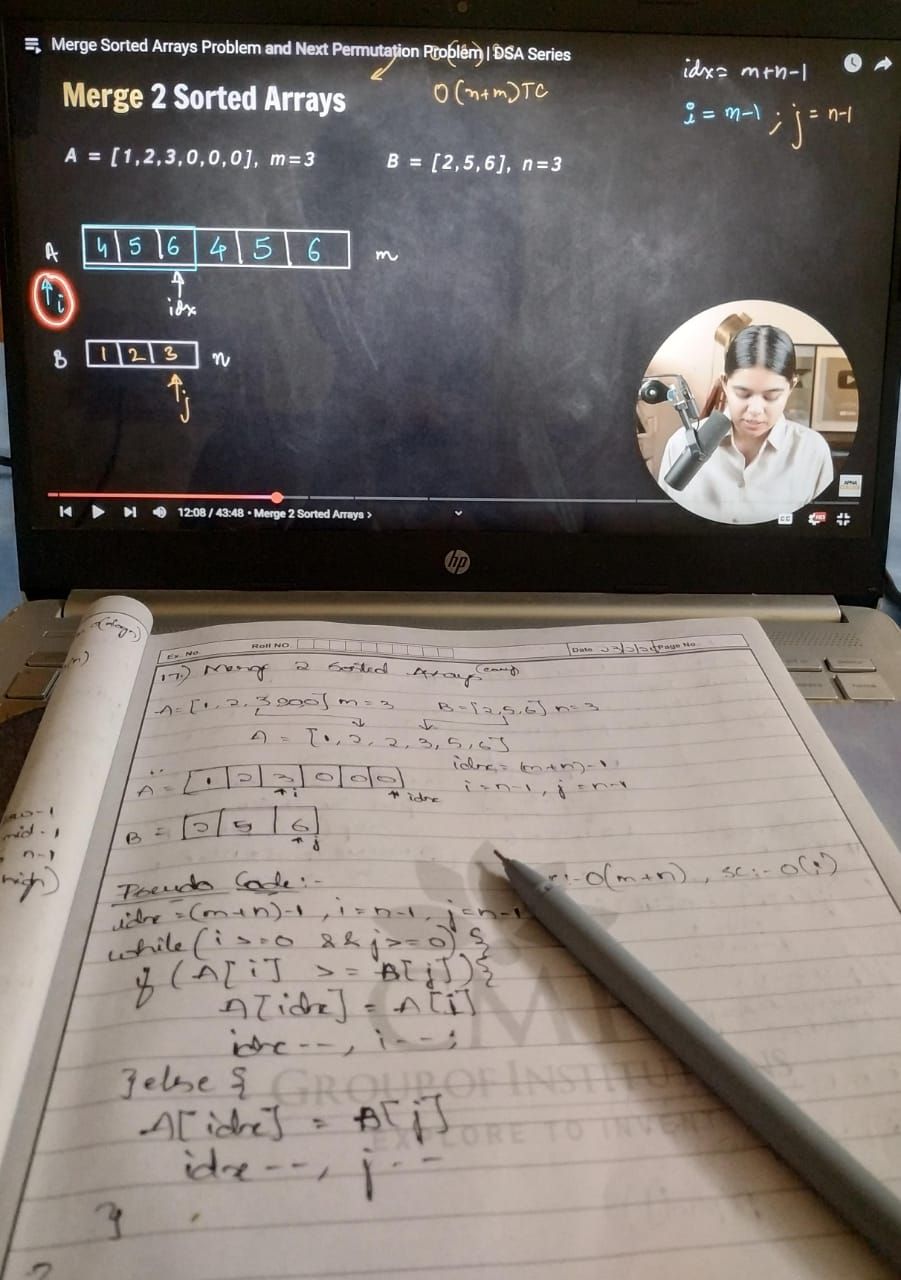 Merge Sorted Arrays Problem and Next Permutation Problem | DSA Series
Merge 2 Sorted Arrays
O(n+m) TC
idx = m+n-1
i = m-1 ; j = n-1
A = [1,2,3,0,0,0], m=3 B = [2,5,6], n=3
A 4 5 6 4 5 6 m
i idx
B 1 2 3 n
j
APNA
12:08 / 43:48 • Merge 2 Sorted Arrays >
CC HD
hp
Ex. No. Roll NO. Date Page No.
17.) Merge 2 Sorted Arrays (easy)
A = [1, 2, 3,0,0,0] m = 3 B = [2,5,6] n = 3
A = [1, 2, 2, 3, 5, 6]
idx = (m+n)-1
i = n-1, j = n-1
A = 1 2 3 0 0 0
i idx
B = 2 5 6
j
Pseudo Code :-
:- O(m+n), SC :- O(1)
idx = (m+n)-1, i = n-1, j = n-1
while (i >= 0 && j >= 0) {
if (A[i] >= B[j]) {
A[idx] = A[i]
idx --, i --;
} else {
A[idx] = B[j]
idx --, j --
}
GROUP OF INSTITUTIONS
EXPLORE TO INVENT